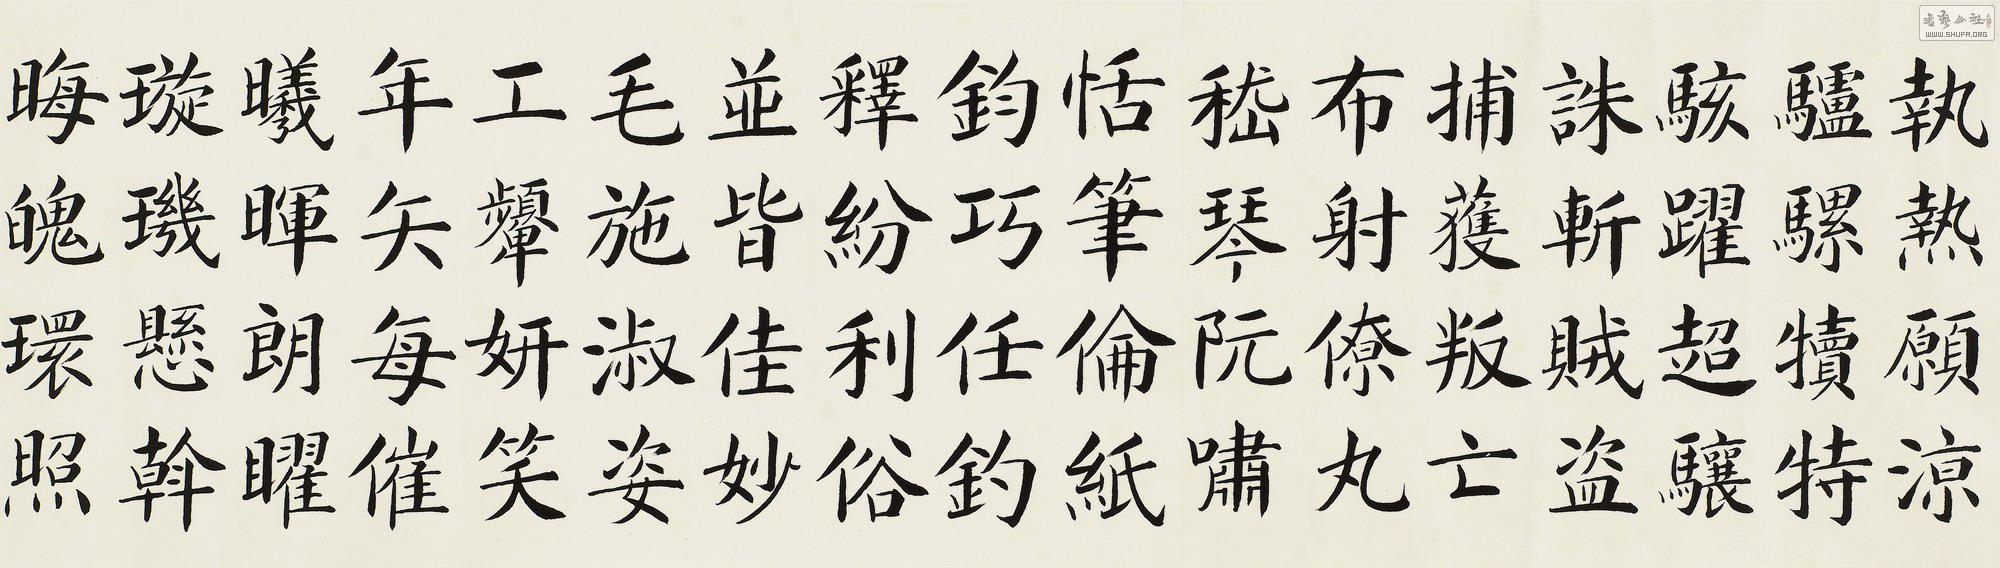 執熱願涼
驢騾犢特
駭躍超驤
誅斬賊盜
捕獲叛亡
布射僚丸
嵇琴阮嘯
恬筆倫紙
鈞巧任釣
釋紛利俗
並皆佳妙
毛施淑姿
工顰妍笑
年矢每催
曦暉朗曜
璇璣懸斡
晦魄環照
WWW.SHUFA.ORG